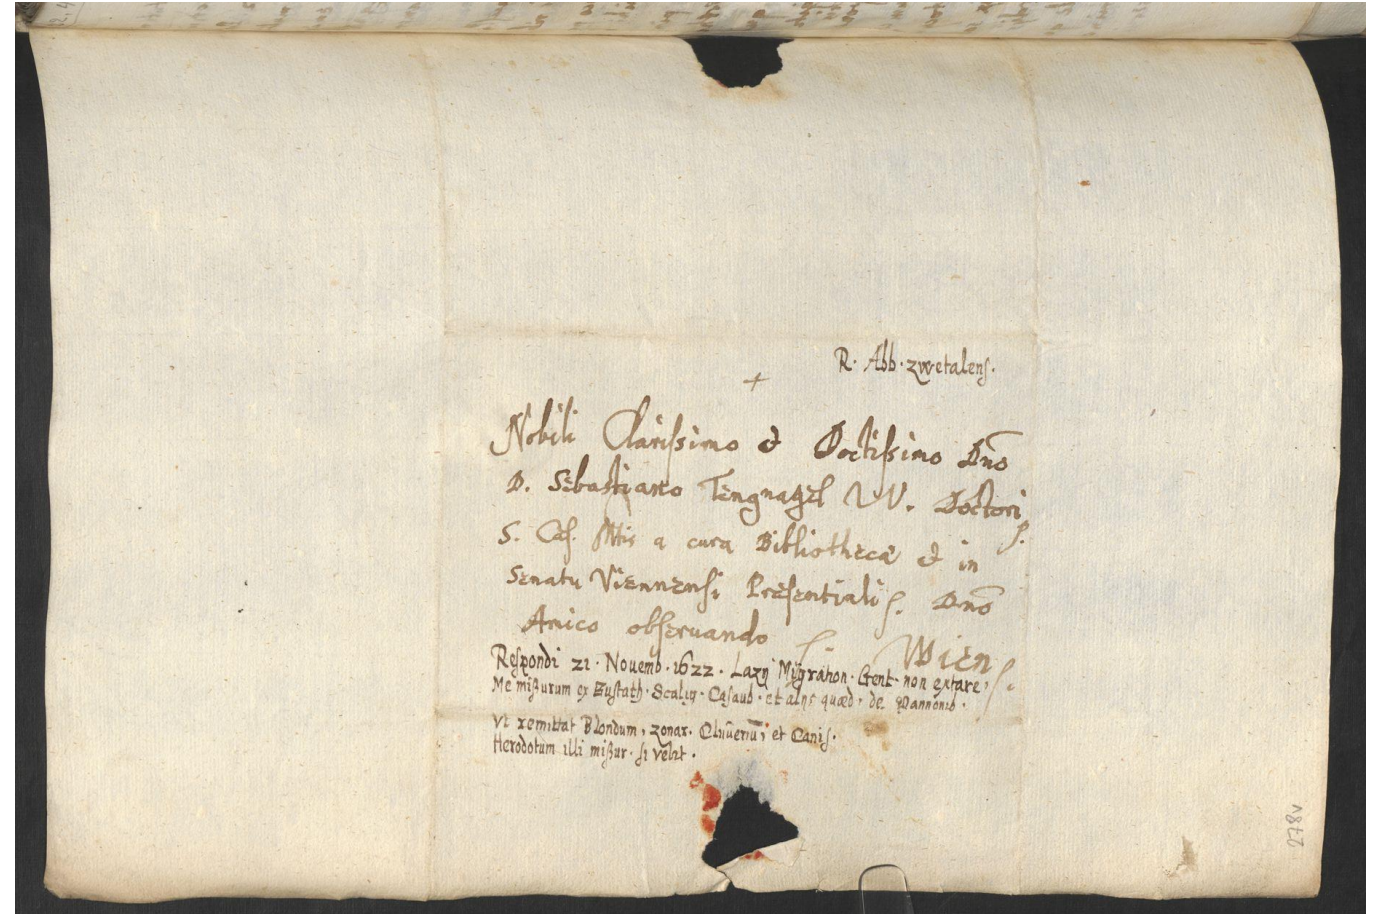 R. Abb. zwetalens.
+
Nobili Clarissimo et Doctissimo Dno
D. Sebastiano Tengnagel I V. Doctori
S. Caes. Mtis a cura Bibliothecae et in
Senatu Viennensi Praesentiali s. Dno
Amico observando
Wien
Respondi 21. Nouemb. 1622. Lazij Migration. Gent. non extare,
Me mißurum ex Eustath. Scalig. Casaub. et alijs quaed. de Pannonib.
Vt remittat Blondum, zonar. Cluueriū, et Canis.
Herodotum illi mißur. si velit.
278v